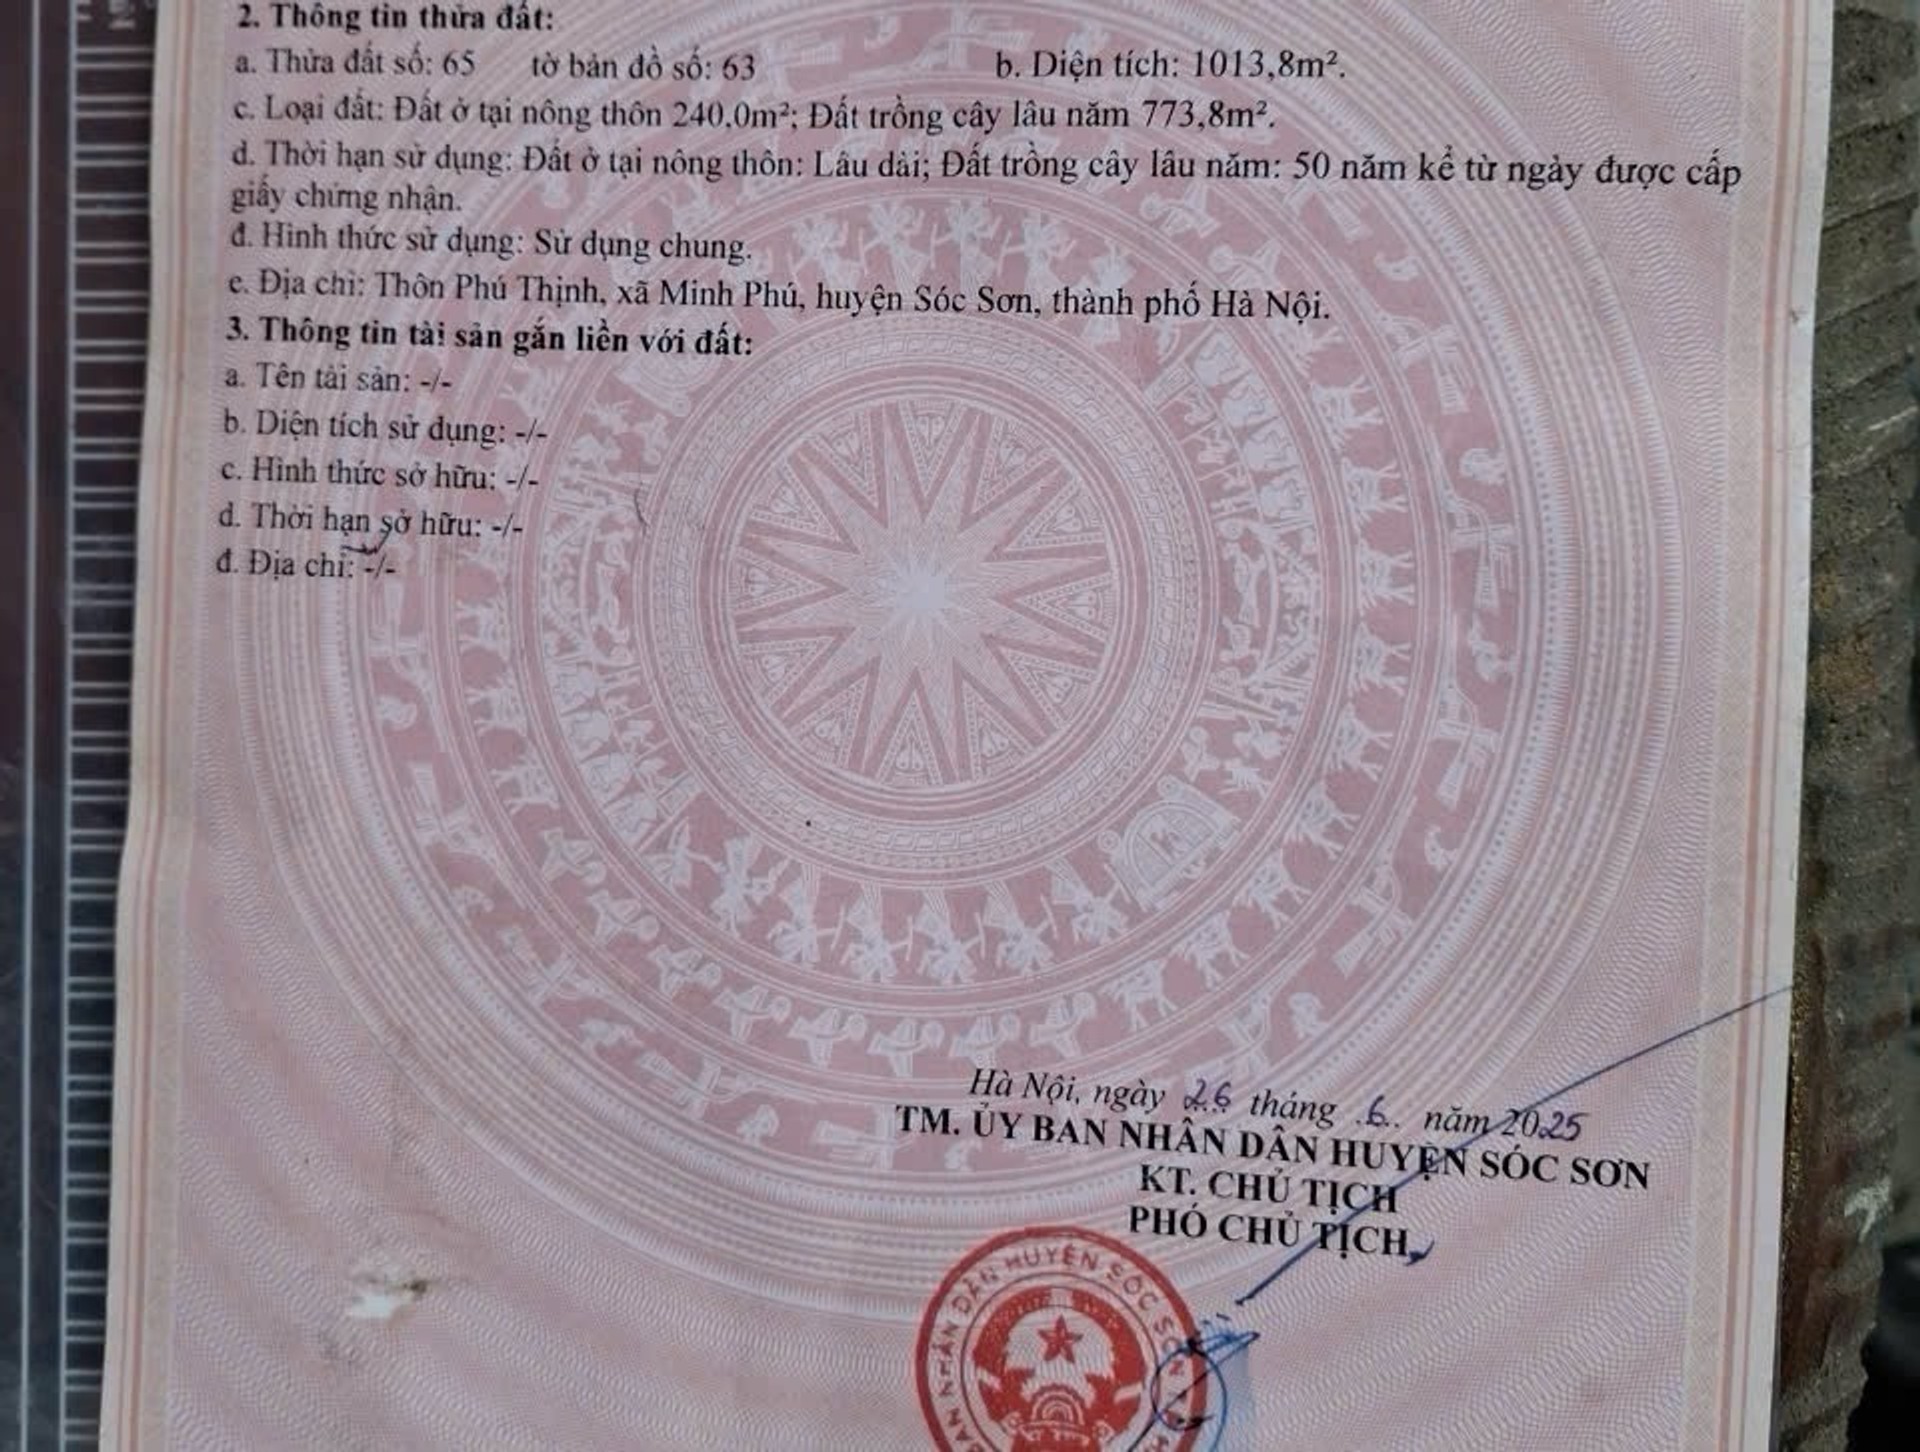 2. Thông tin thửa đất:
a. Thửa đất số: 65 tờ bản đồ số: 63 b. Diện tích: 1013,8m².
c. Loại đất: Đất ở tại nông thôn 240,0m²; Đất trồng cây lâu năm 773,8m².
d. Thời hạn sử dụng: Đất ở tại nông thôn: Lâu dài; Đất trồng cây lâu năm: 50 năm kể từ ngày được cấp
giấy chứng nhận.
đ. Hình thức sử dụng: Sử dụng chung.
e. Địa chỉ: Thôn Phú Thịnh, xã Minh Phú, huyện Sóc Sơn, thành phố Hà Nội.
3. Thông tin tài sản gắn liền với đất:
a. Tên tài sản: -/-
b. Diện tích sử dụng: -/-
c. Hình thức sở hữu: -/-
d. Thời hạn sở hữu: -/-
đ. Địa chỉ: -/-
Hà Nội, ngày 26 tháng 6 năm 2025
TM. ỦY BAN NHÂN DÂN HUYỆN SÓC SƠN
KT. CHỦ TỊCH
PHÓ CHỦ TỊCH
BAN NHÂN DÂN HUYỆN SÓC SƠN